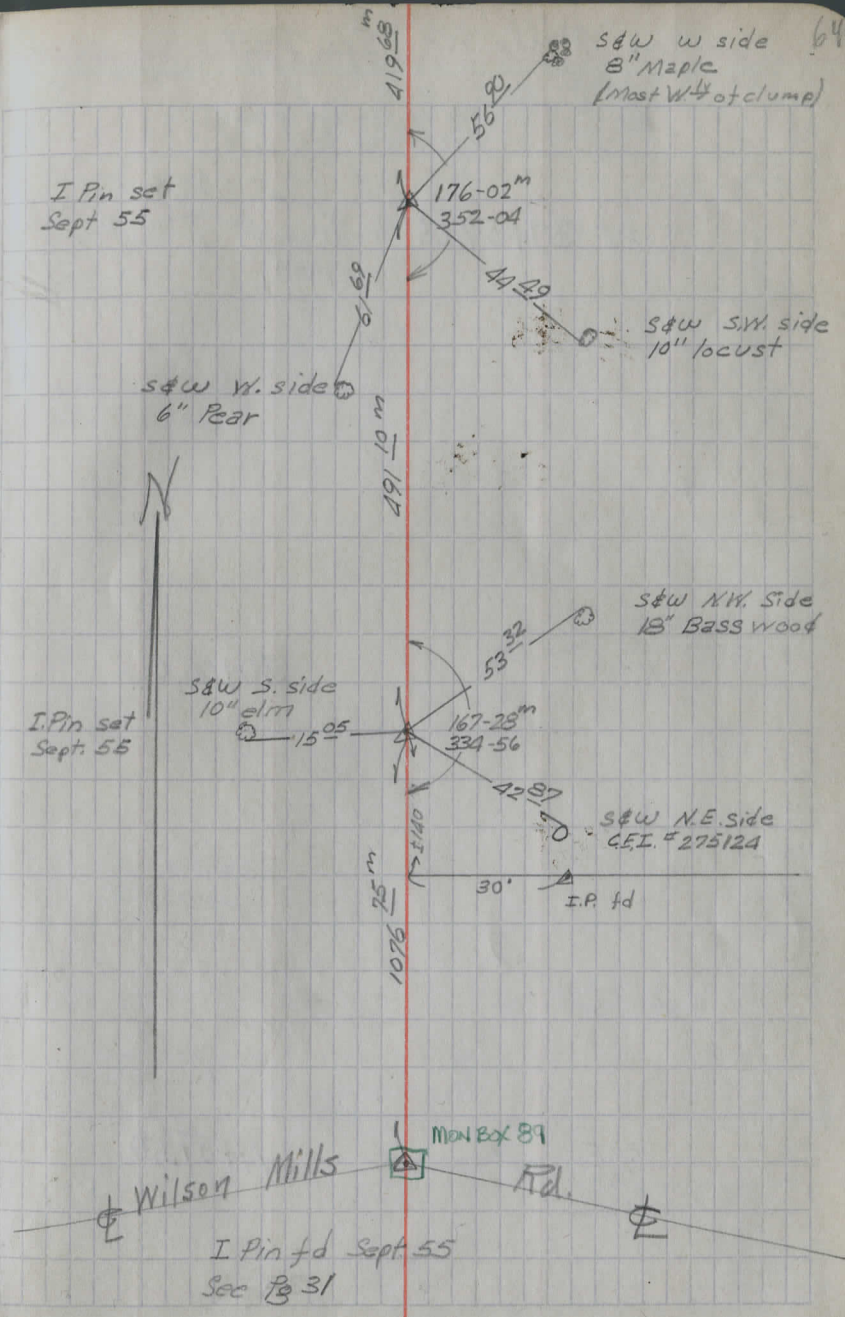 64
419 68 m
S&W W side
8" Maple
(Most W'ly of clump)
56 90
I Pin set
Sept 55
176-02 m
352-04
61 69
44 49
S&W S.W. side
10" locust
S&W W. side
6" Pear
491 10 m
N
S&W N.W. Side
18" Bass wood
53 32
S&W S. side
10" elm
I.Pin set
Sept. 55
15 05
167-28 m
334-56
42 87
S&W N.E. side
C.E.I. #275124
±140
30'
I.P. fd
1076 75 m
MON BOX 89
Wilson Mills Rd.
℄
℄
I Pin fd Sept. 55
See Pg 31